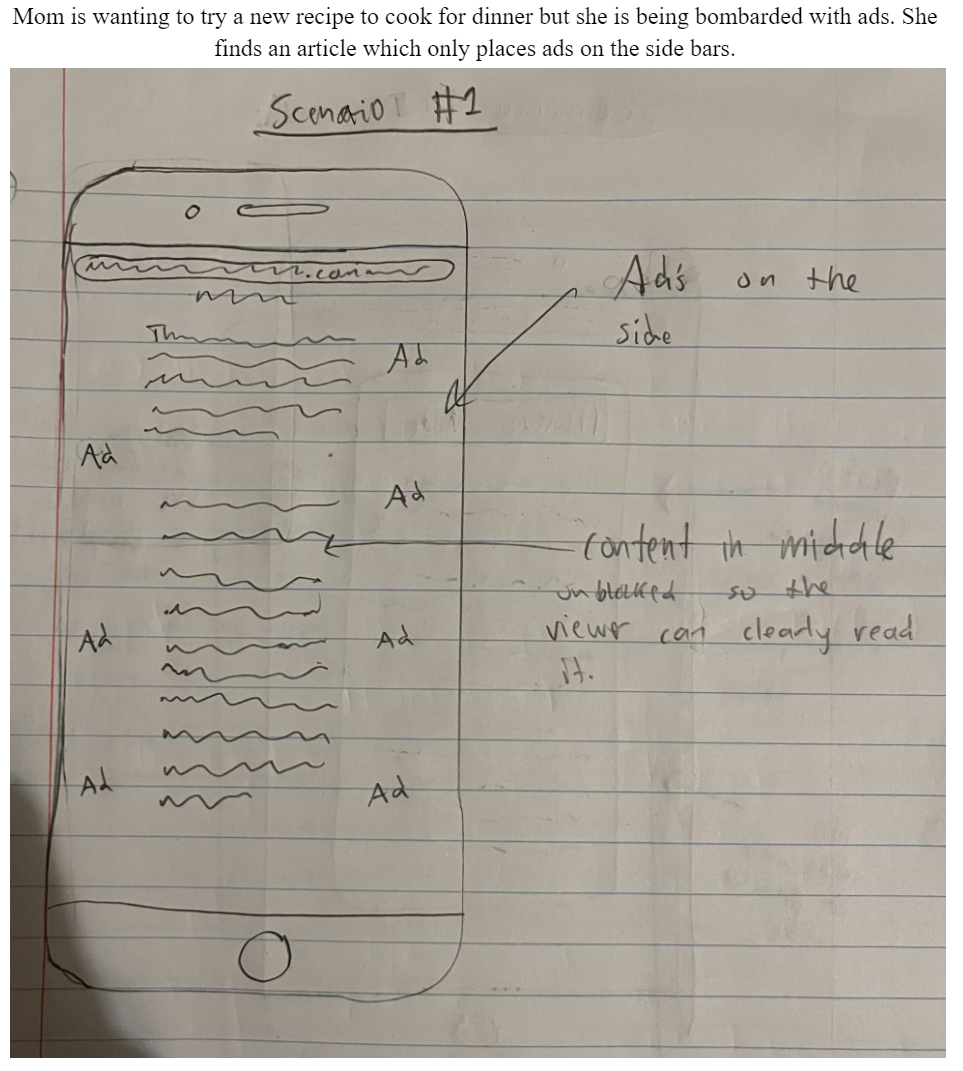 Mom is wanting to try a new recipe to cook for dinner but she is being bombarded with ads. She
finds an article which only places ads on the side bars.
Scenario #1
.com
Th
Ad
Ad's on the
side
Ad
Ad
content in middle
unblocked so the
viewer can clearly read
it.
Ad
Ad
Ad
Ad